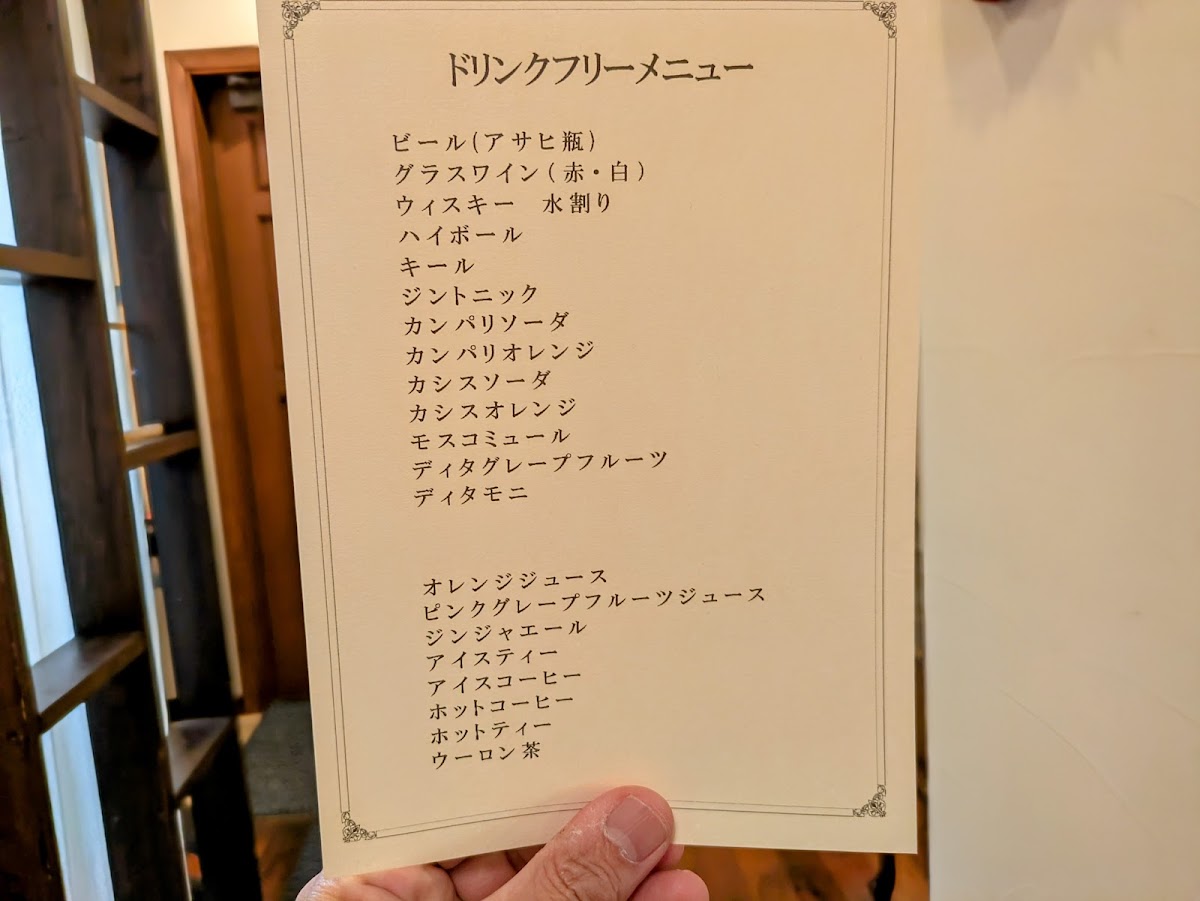 ドリンクフリーメニュー
ビール(アサヒ瓶)
グラスワイン(赤・白)
ウィスキー　水割り
ハイボール
キール
ジントニック
カンパリソーダ
カンパリオレンジ
カシスソーダ
カシスオレンジ
モスコミュール
ディタグレープフルーツ
ディタモニ
オレンジジュース
ピンクグレープフルーツジュース
ジンジャエール
アイスティー
アイスコーヒー
ホットコーヒー
ホットティー
ウーロン茶